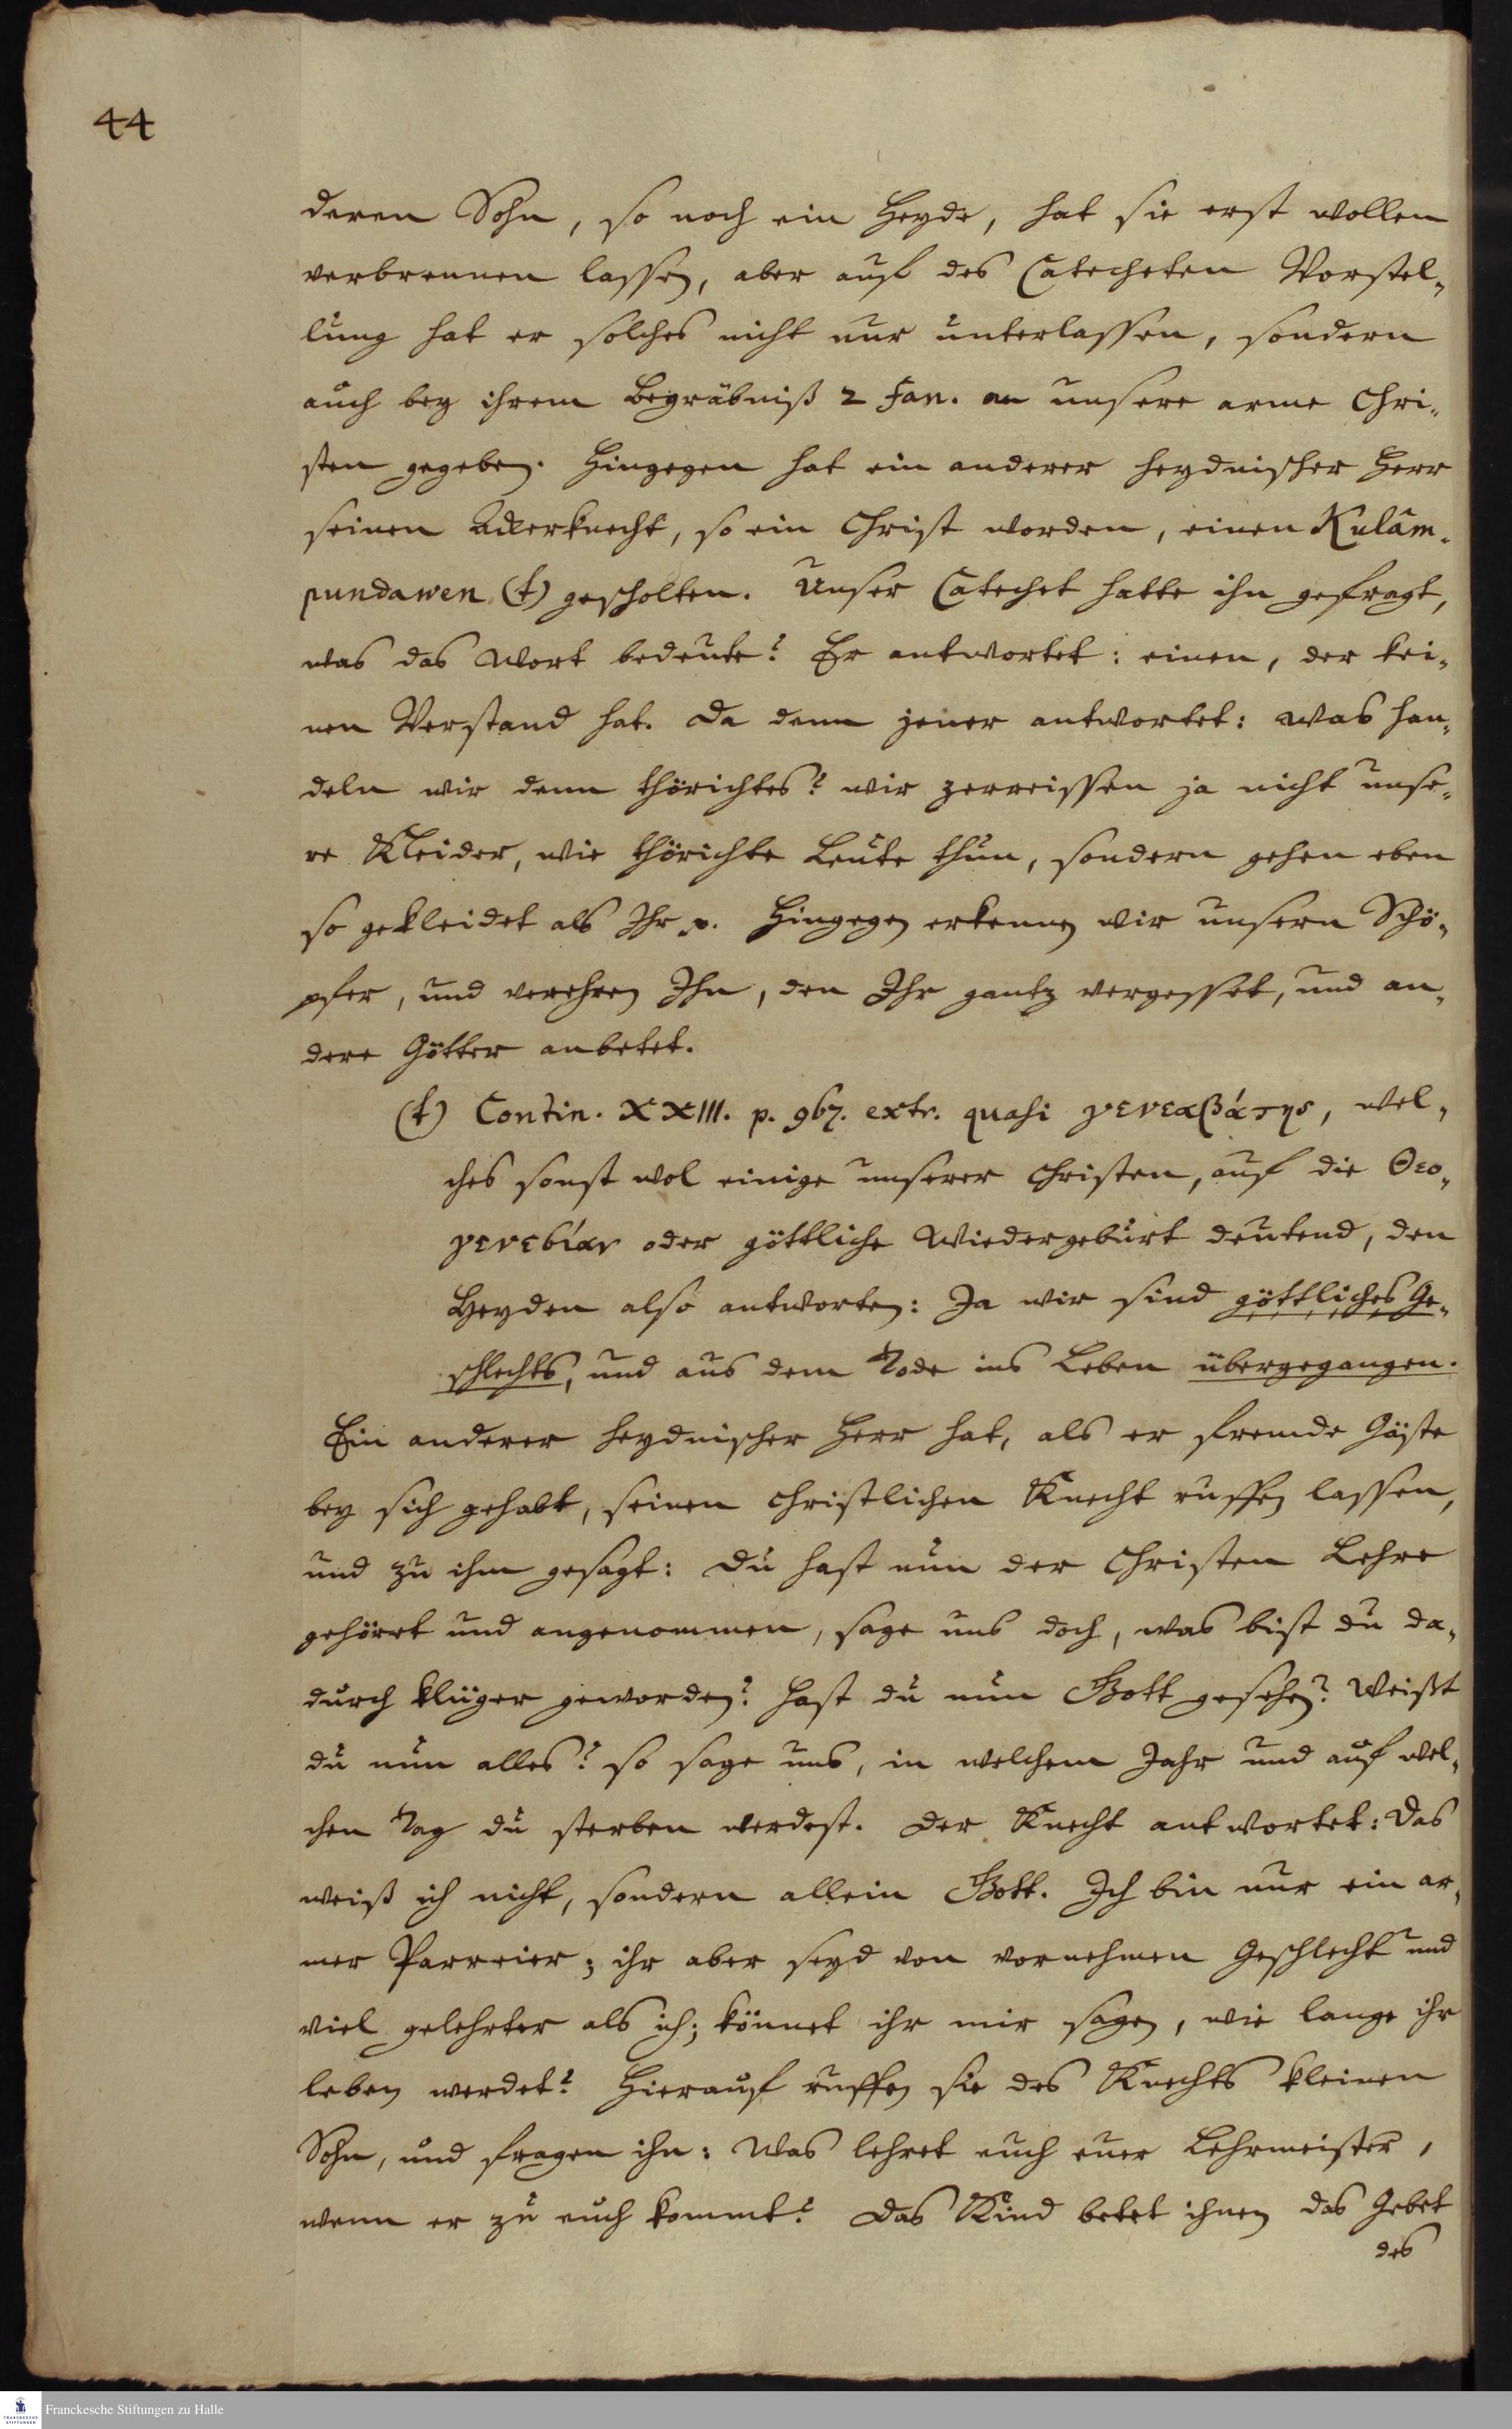 44
deren Sohn, so noch ein Heyde, hat sie erst wollen
verbrennen lassen, aber auf des Catecheten Vorstel-
lung hat er solches nicht nur unterlassen, sondern
auch bey ihrem Begräbniß 2 Fan. an unsere arme Chri-
sten gegeben. Hingegen hat ein anderer heydnischer Herr
seinen Ackerknecht, so ein Christ worden, einen Kulâm-
pundawen (†) gescholten. Unser Catechet hatte ihn gefragt,
was das Wort bedeute? Er antwortet: einen, der kei-
nen Verstand hat. Da denn jener antwortet: Was han-
deln wir denn thörichtes? wir zerreissen ja nicht unse-
re Kleider, wie thörichte Leute thun, sondern gehen eben
so gekleidet als Ihr p. Hingegen erkennen wir unsern Schö-
pfer, und verehren Ihn, den Ihr gantz vergesset, und an-
dere Götter anbetet.
(†) Contin. XXIII. p. 967. extr. quasi γενεαβάτης, wel-
ches sonst wol einige unserer Christen, auf die Θεο-
γενεσίαν oder göttliche Wiedergeburt deutend, den
Heyden also antworten: Ja wir sind göttliches Ge-
schlechts, und aus dem Tode ins Leben übergegangen.
Ein anderer heydnischer Herr hat, als er fremde Gäste
bey sich gehabt, seinen christlichen Knecht ruffen lassen,
und zu ihm gesagt: Du hast nun der Christen Lehre
gehöret und angenommen, sage uns doch, was bist du da-
durch klüger geworden? Hast du nun Gott gesehen? Weißt
du nun alles? so sage uns, in welchem Jahr und auf wel-
chen Tag du sterben werdest. Der Knecht antwortet: Das
weiß ich nicht, sondern allein Gott. Ich bin nur ein ar-
mer Parreier; ihr aber seyd von vornehmen Geschlecht und
viel gelehrter als ich; könnet ihr mir sagen, wie lange ihr
leben werdet? Hierauf ruffen sie des Knechts kleinen
Sohn, und fragen ihn: Was lehret euch euer Lehrmeister,
wenn er zu euch kommt? Das Kind betet ihnen das Gebet
des
FRANCKESCHE STIFTUNGEN
Franckesche Stiftungen zu Halle